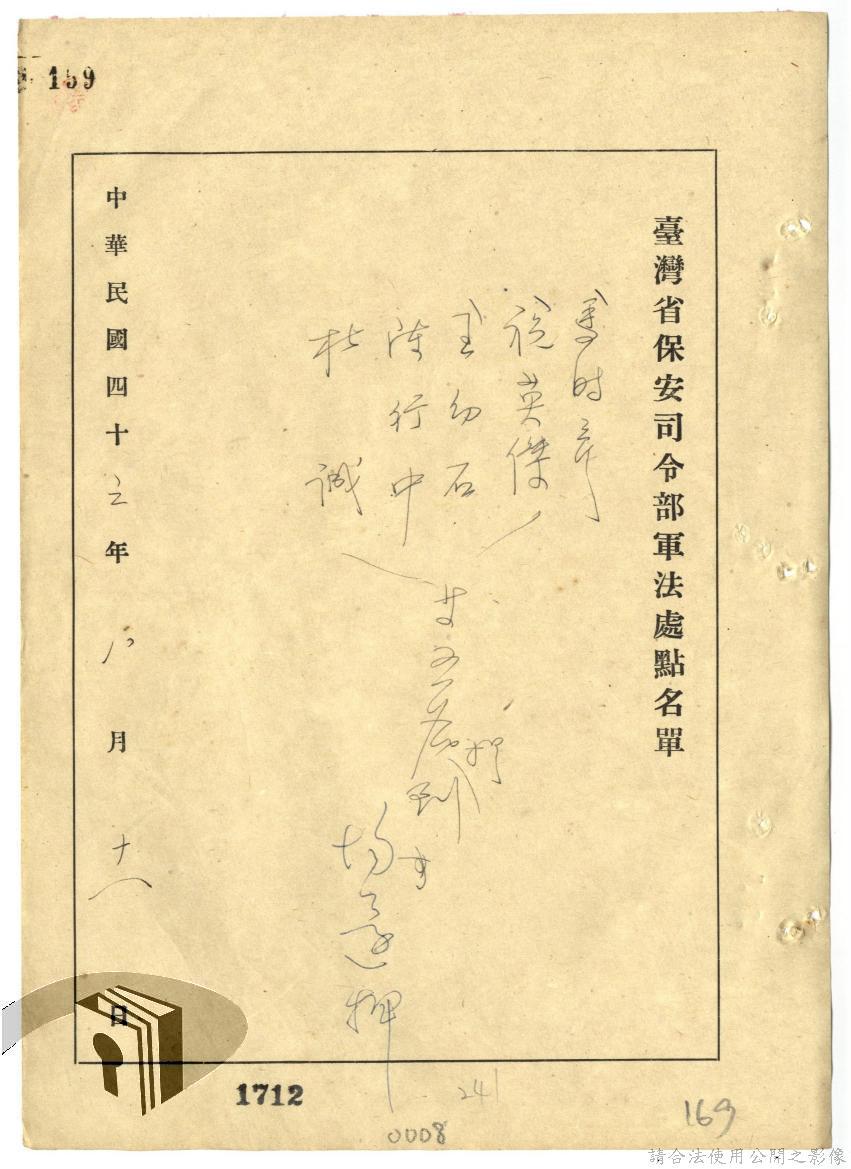 159
臺灣省保安司令部軍法處點名單
時彥
英傑
王幼石
陳行中
杜誠
共五名押到
均還押
中華民國四十三年八月十八日
1712
241
0008
169
請合法使用公開之影像